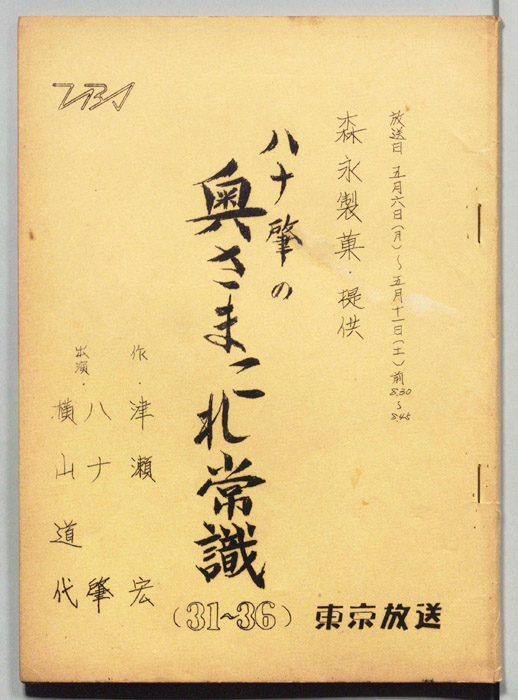 TBS
放送日 五月六日(月)~五月十一日(土)前8.30~8.45
森永製菓・提供
ハナ肇の
奥さまこれ常識
作・津瀬 宏
出演・ハナ 肇
横山道代
(31~36)
東京放送